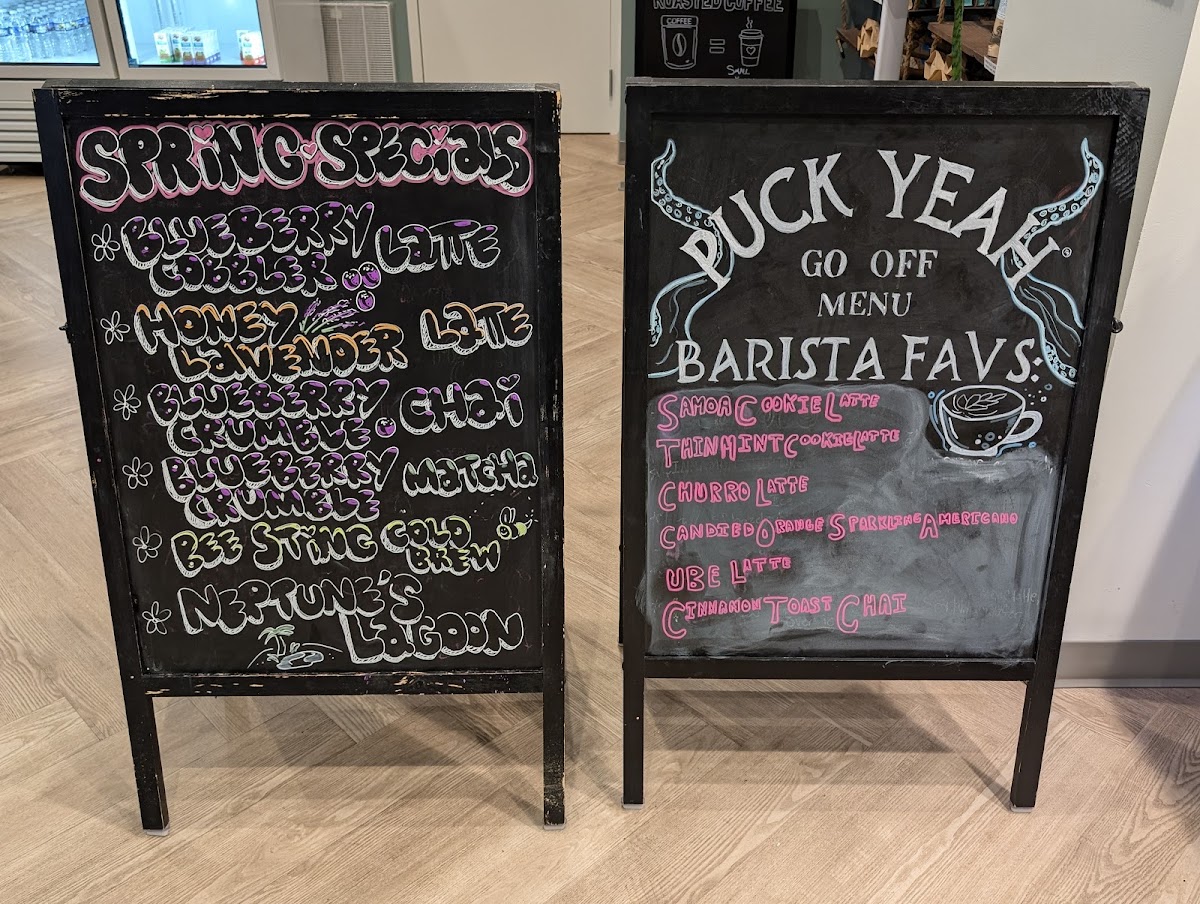 ROASTED COFFEE
COFFEE
=
SMALL
SPRING SPECIALS
BLUEBERRY
COBBLER LATTE
HONEY
LAVENDER LATTE
BLUEBERRY
CRUMBLE CHAI
BLUEBERRY
CRUMBLE MATCHA
BEE STING COLD
BREW
NEPTUNE'S
LAGOON
PUCK YEAH
GO OFF
MENU
BARISTA FAVS:
SAMOA COOKIE LATTE
THIN MINT COOKIE LATTE
CHURRO LATTE
CANDIED ORANGE SPARKLING AMERICANO
UBE LATTE
CINNAMON TOAST CHAI